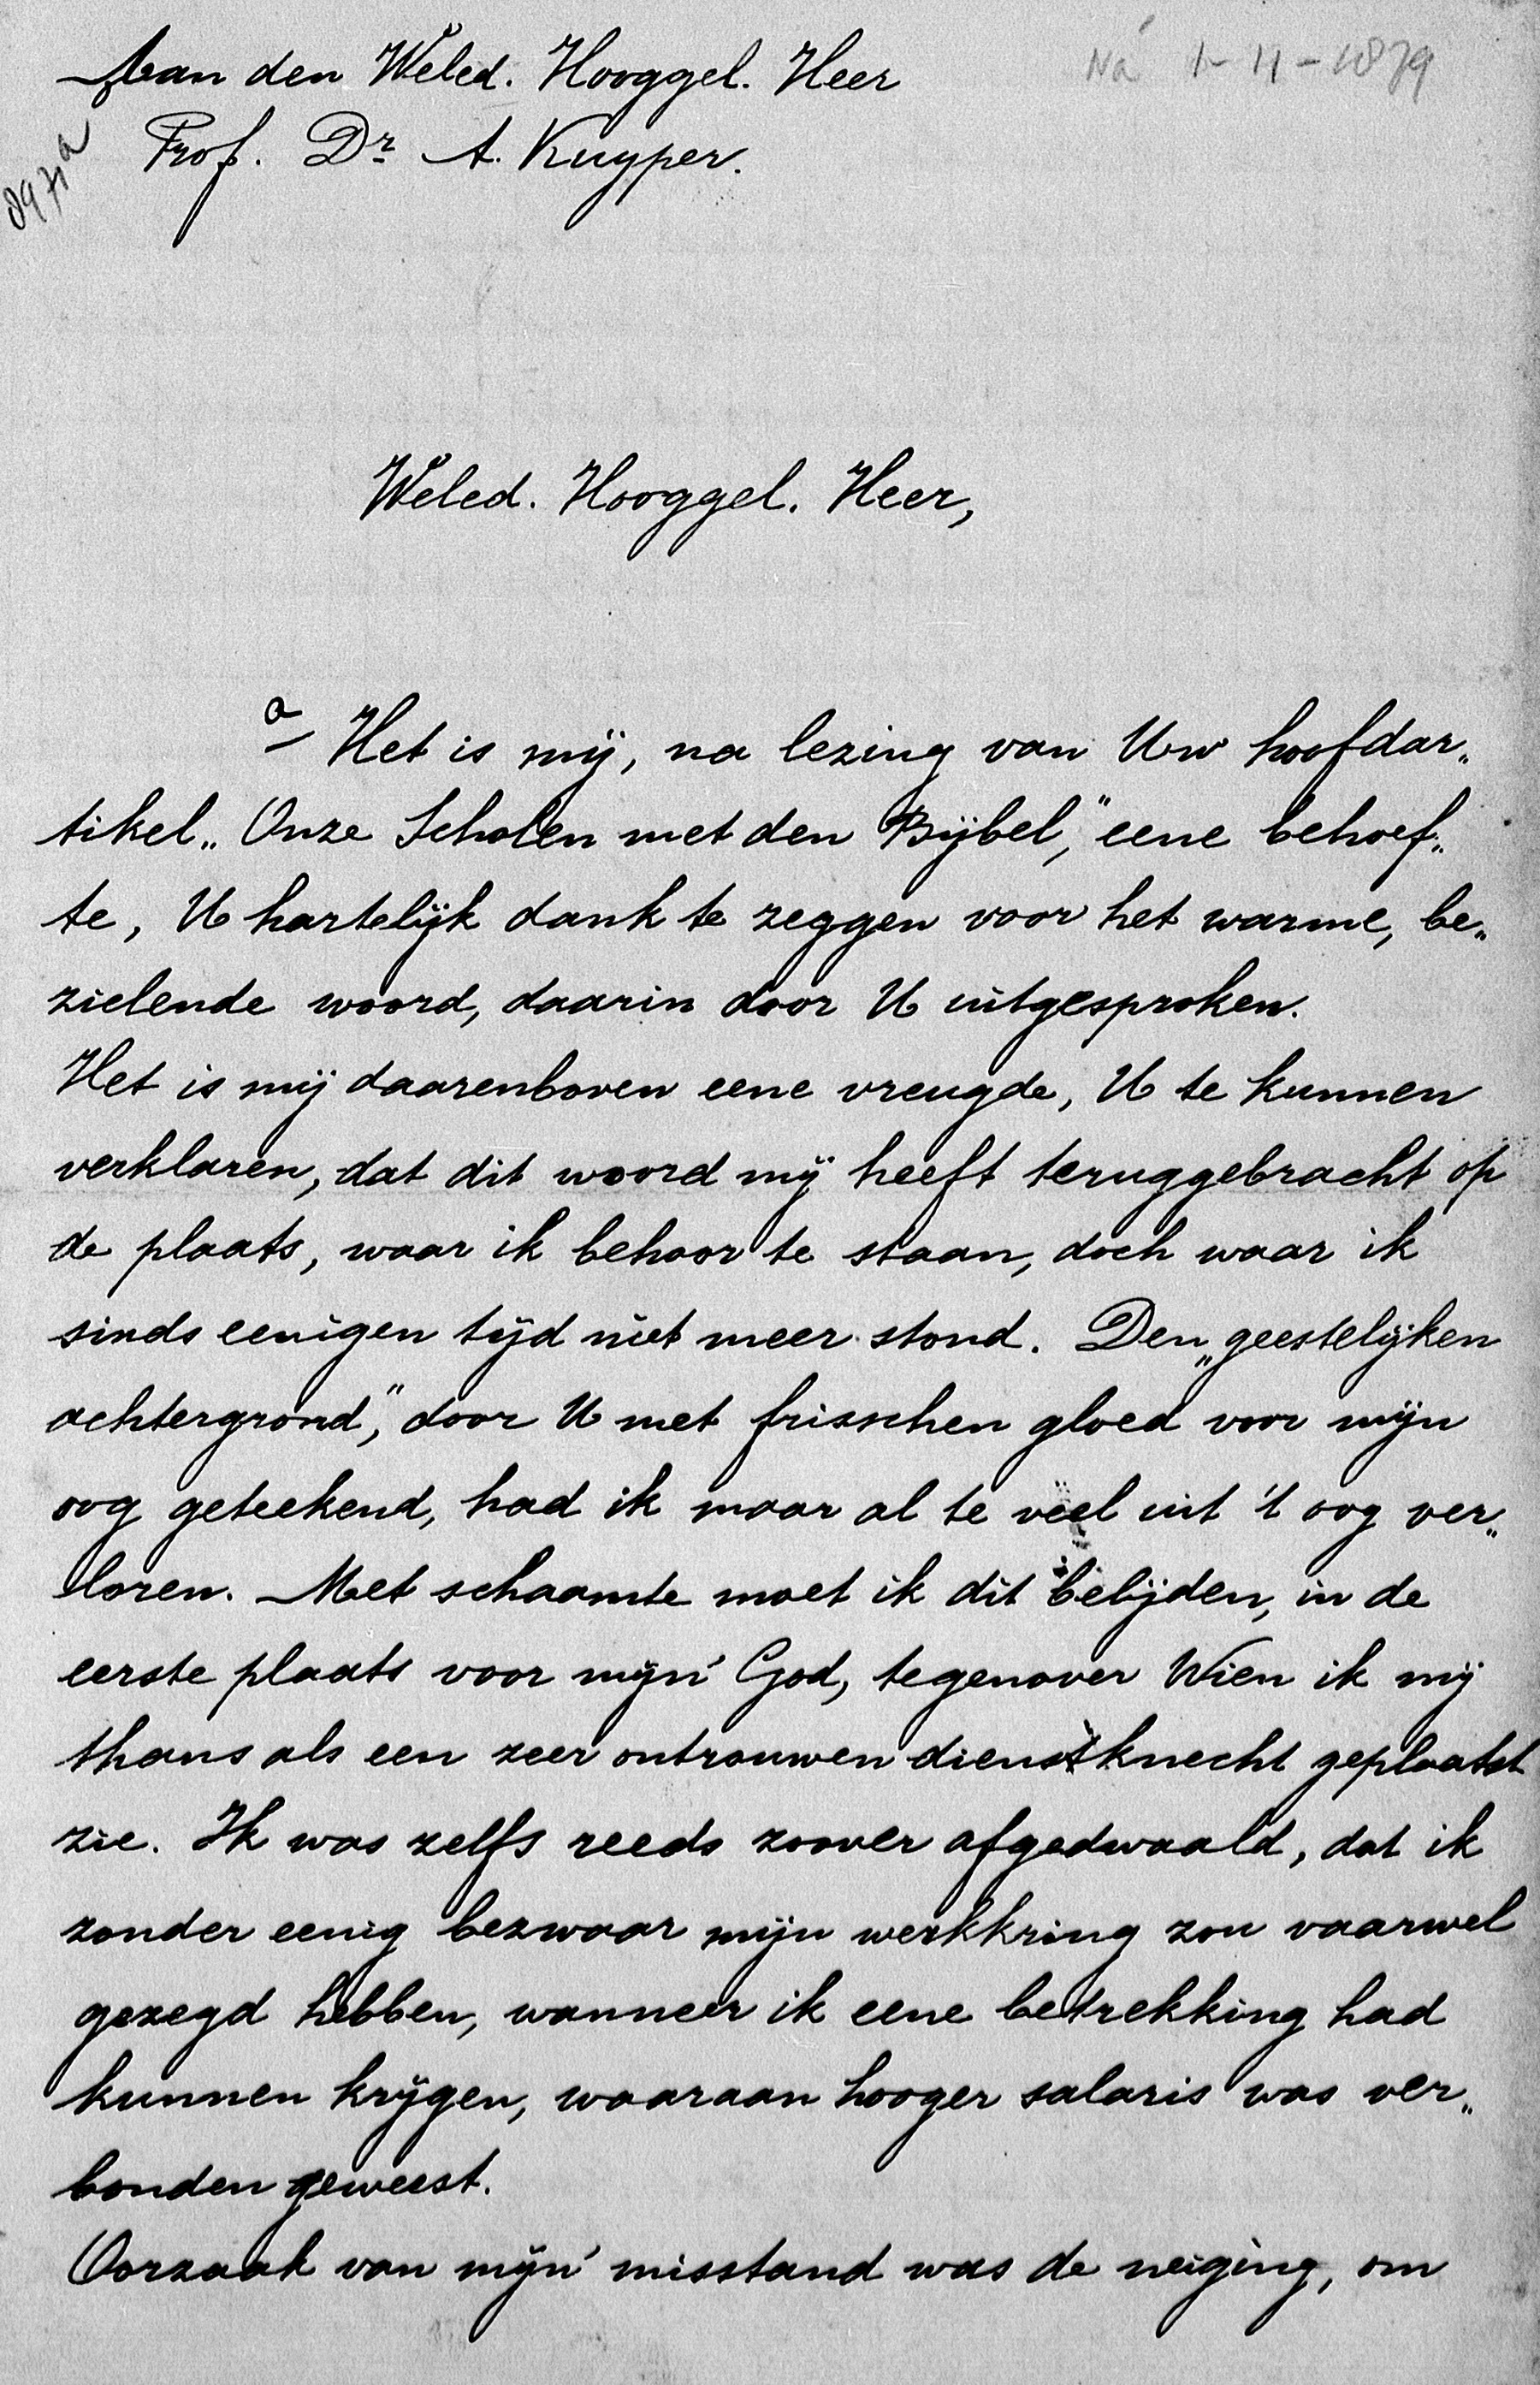 Aan den Weled. Hooggel. Heer
Ná 1-11-1879
Prof. Dr A. Kuyper.
Weled. Hooggel. Heer,
a/ Het is mij, na lezing van Uw hoofdar„
tikel „Onze Scholen met den Bijbel,” eene behoef„
te, U hartelijk dank te zeggen voor het warme, be„
zielende woord, daarin door U uitgesproken.
Het is mij daarenboven eene vreugde, U te kunnen
verklaren, dat dit woord mij heeft teruggebracht op
de plaats, waar ik behoor te staan, doch waar ik
sinds eenigen tijd niet meer stond. Den „geestelijken
achtergrond,” door U met frisschen gloed voor mijn
oog geteekend, had ik maar al te veel uit 't oog ver„
loren. Met schaamte moet ik dit belijden, in de
eerste plaats voor mijn' God, tegenover Wien ik mij
thans als een zeer ontrouwen dienstknecht geplaatst
zie. Ik was zelfs reeds zoover afgedwaald, dat ik
zonder eenig bezwaar mijn werkkring zou vaarwel
gezegd hebben, wanneer ik eene betrekking had
kunnen krijgen, waaraan hooger salaris was ver„
bonden geweest.
Oorzaak van mijn' misstand was de neiging, om